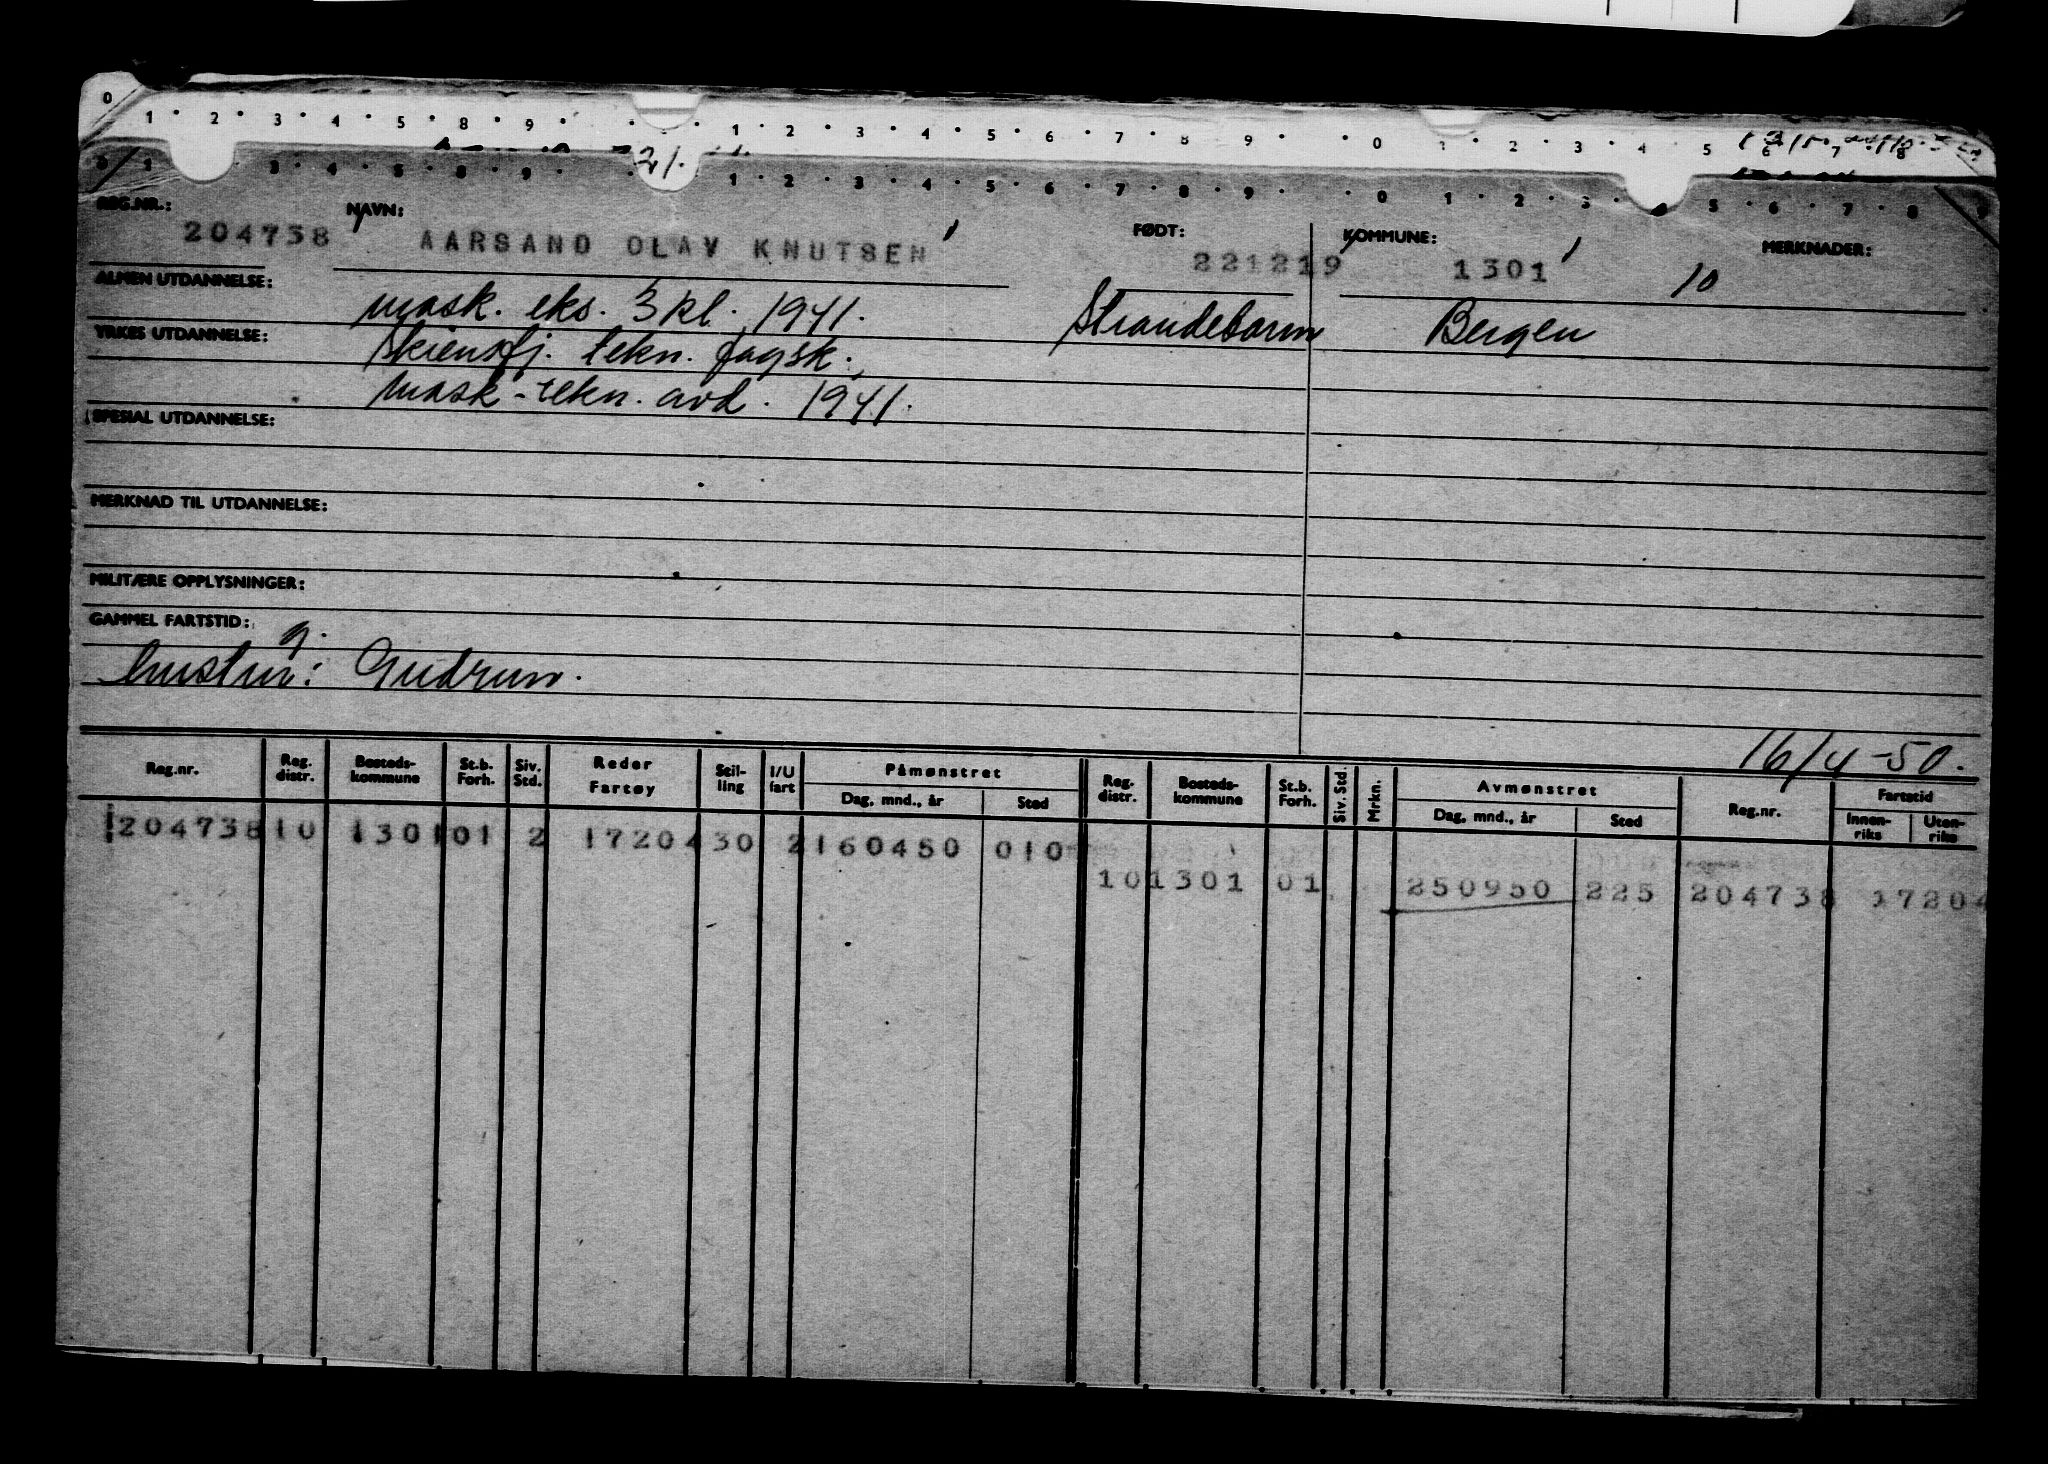 0 1 2 3 4 5 8 9 1 2 3 4 5 6 7 8 9 0 1 2 3 4 5 6 7 8
0 1 3 4 5 8 9 21. 1 2 3 4 5 6 7 8 9 0 1 2 3 4 5 6 7 8 9
REG.NR.: NAVN: FØDT: KOMMUNE: MERKNADER:
204738 AARSAND OLAV KNUTSEN 221219 1301 10
ALMEN UTDANNELSE: mask. eks. 3 kl. 1941. Strandebarm Bergen
YRKES UTDANNELSE: Skiensfj. tekn. fagsk.
mask-tekn. avd. 1941.
SPESIAL UTDANNELSE:
MERKNAD TIL UTDANNELSE:
MILITÆRE OPPLYSNINGER:
GAMMEL FARTSTID:
g.
hustru: Gudrun.
16/4-50.
Reg.nr. Reg. distr. Bosteds-kommune St.b. Forh. Siv. Std. Reder Fartøy Stil-ling I/U fart Påmønstret Dag, mnd., år Sted Reg. distr. Bosteds-kommune St.b. Forh. Siv. Std. Mrkn. Avmønstret Dag, mnd., år Sted Reg.nr. Fartstid Innen-riks Uten-riks
204738 10 1301 01 2 17204 30 2 160450 010
10 1301 01 250950 225 204738 17204